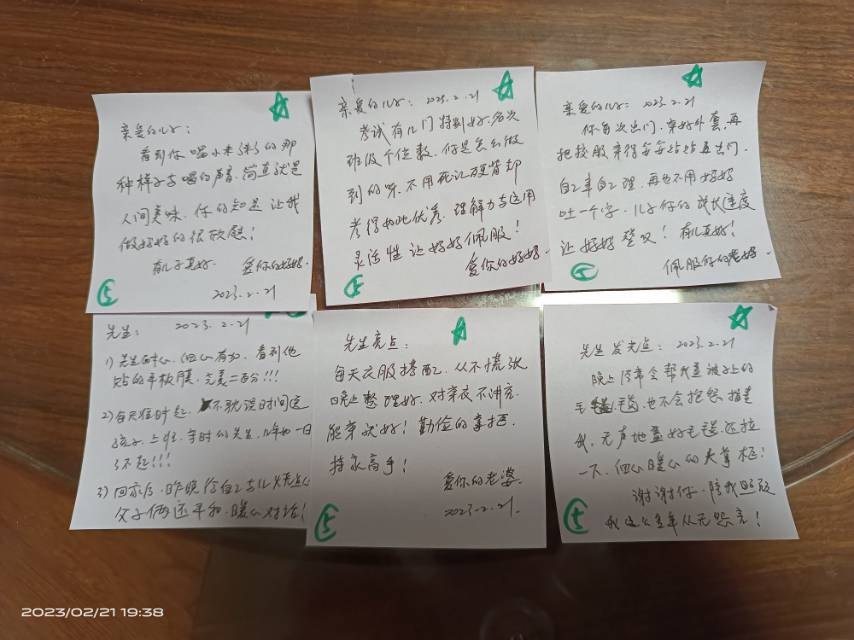 亲爱的儿子：
看到你喝小米粥的那
种样子与喝的声音，简直就是
人间美味，你的知足让我
做妈妈的很欣慰！
有儿子真好，爱你的妈妈。
2023.2.21
⑤
亲爱的儿子：2023.2.21
考试有几门特别好，名次
班级个位数，你是怎么做
到的呀，不用死记硬背却
考得如此优秀，理解力与运用
灵活性让妈妈佩服！
爱你的妈妈。
⑤
亲爱的儿子：2023.2.21
你每次出门，穿好外套，再
把校服穿得
出门，
自己事自己理，再也不用妈妈
吐一个字，儿子你的成长速度
让妈妈赞叹！有儿真好！
佩服你的老妈。
⑤
先生：2023.2.21
1）先生耐心，细心有加，看到他
贴的手机膜，完美二百分！！！
2）每天准时起，不耽误时间送
孩子上学，守时的先生，几年如一日
了不起！！！
3）回家后，昨晚
父子俩还平和、暖心对话！
先生亮点：
每天衣服搭配，从不慌张
晚上整理好，对穿衣不讲究
能穿就好！勤俭的
持家高手！
爱你的老婆。
2023.2.21.
⑤
先生发光点：2023.2.21
晚上
会帮我盖被子上的
毛毯，也不会抱怨指责
我，无声地盖好毛毯，还拉
一下，细心暖心的大
谢谢你，陪我照顾
我这么多年从无怨言！
⑤
2023/02/21 19:38